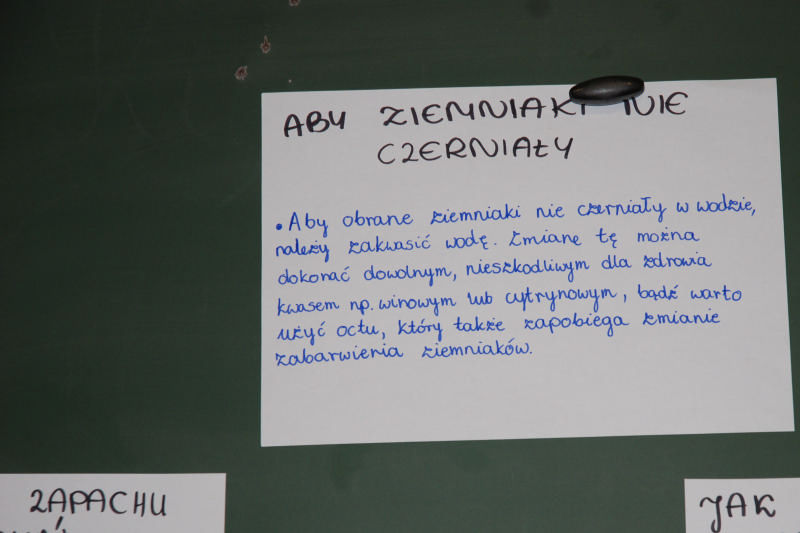 ABY ZIEMNIAKI NIE
CZERNIAŁY
• Aby obrane ziemniaki nie czerniały w wodzie,
należy zakwasić wodę. Zmianę tę można
dokonać dowolnym, nieszkodliwym dla zdrowia
kwasem np. winowym lub cytrynowym, bądź warto
użyć octu, który także zapobiega zmianie
zabarwienia ziemniaków.
ZAPACHU
JAK